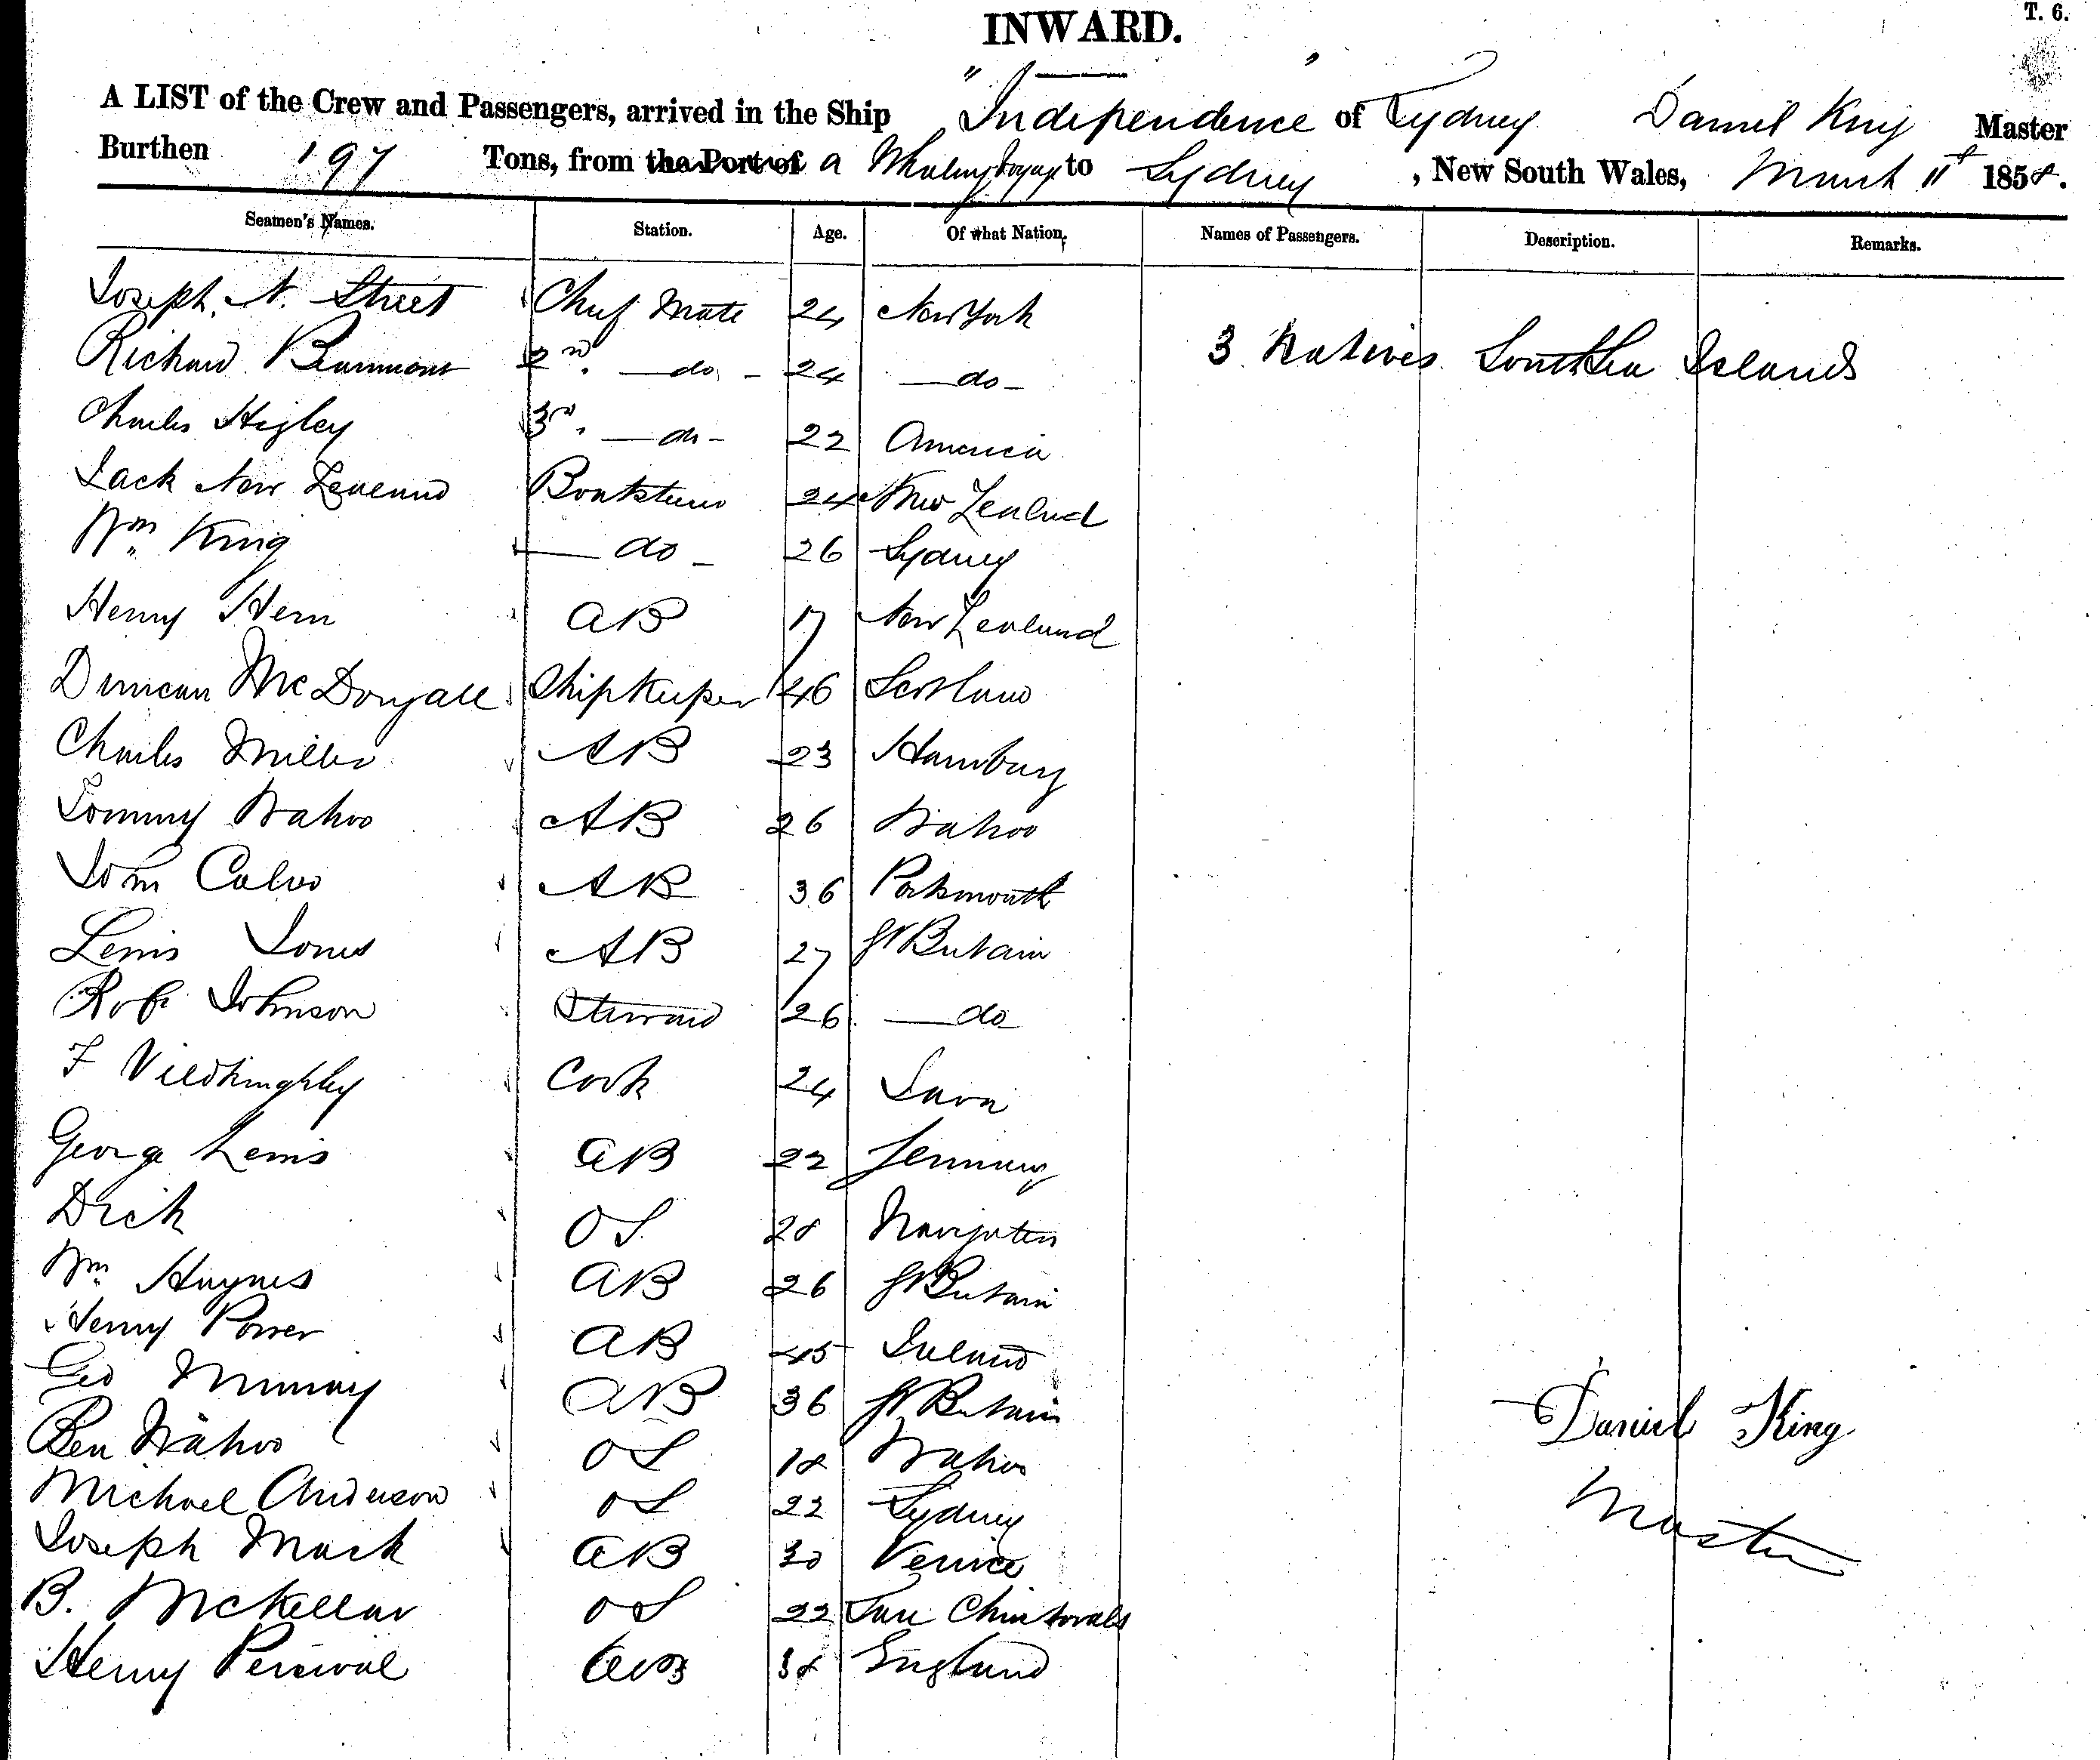 INWARD.
T. 6.
A LIST of the Crew and Passengers, arrived in the Ship "Independence" of Sydney Daniel King Master
Burthen 197 Tons, from the Port of a Whaling Voyage to Sydney, New South Wales, March 11th 1858.
Seamen's Names. Station. Age. Of what Nation. Names of Passengers. Description. Remarks.
Joseph. N. Street Chief Mate 24 New York
Richard Beaumont 2nd. do 24 do 3 Natives South Sea Islands
Charles Higley 3rd. do 22 America
Jack New Zealand Boatsteerer 24 New Zealand
Wm King do 26 Sydney
Henry Hern AB 17 New Zealand
Duncan McDougall Shipkeeper 46 Scotland
Charles Miller AB 23 Hamburg
Tommy Wahoo AB 26 Wahoo
John Calvo AB 36 Portsmouth
Lewis Jones AB 27 Gt Britain
Robt Johnson Steward 26 do
F Cook 24 Java
George Lewis AB 22 Germany
Dick OS 28 Navigators
Wm Haynes AB 26 Gt Britain
Henry Power AB 45 Ireland
Geo Murray AB 36 Gt Britain
Ben Wahoo OS 18 Wahoo
Daniel King
Michael Anderson OS 22 Sydney
Master
Joseph Mark AB 30 Venice
B. McKellar OS 22 San
Henry Percival AB 38 England